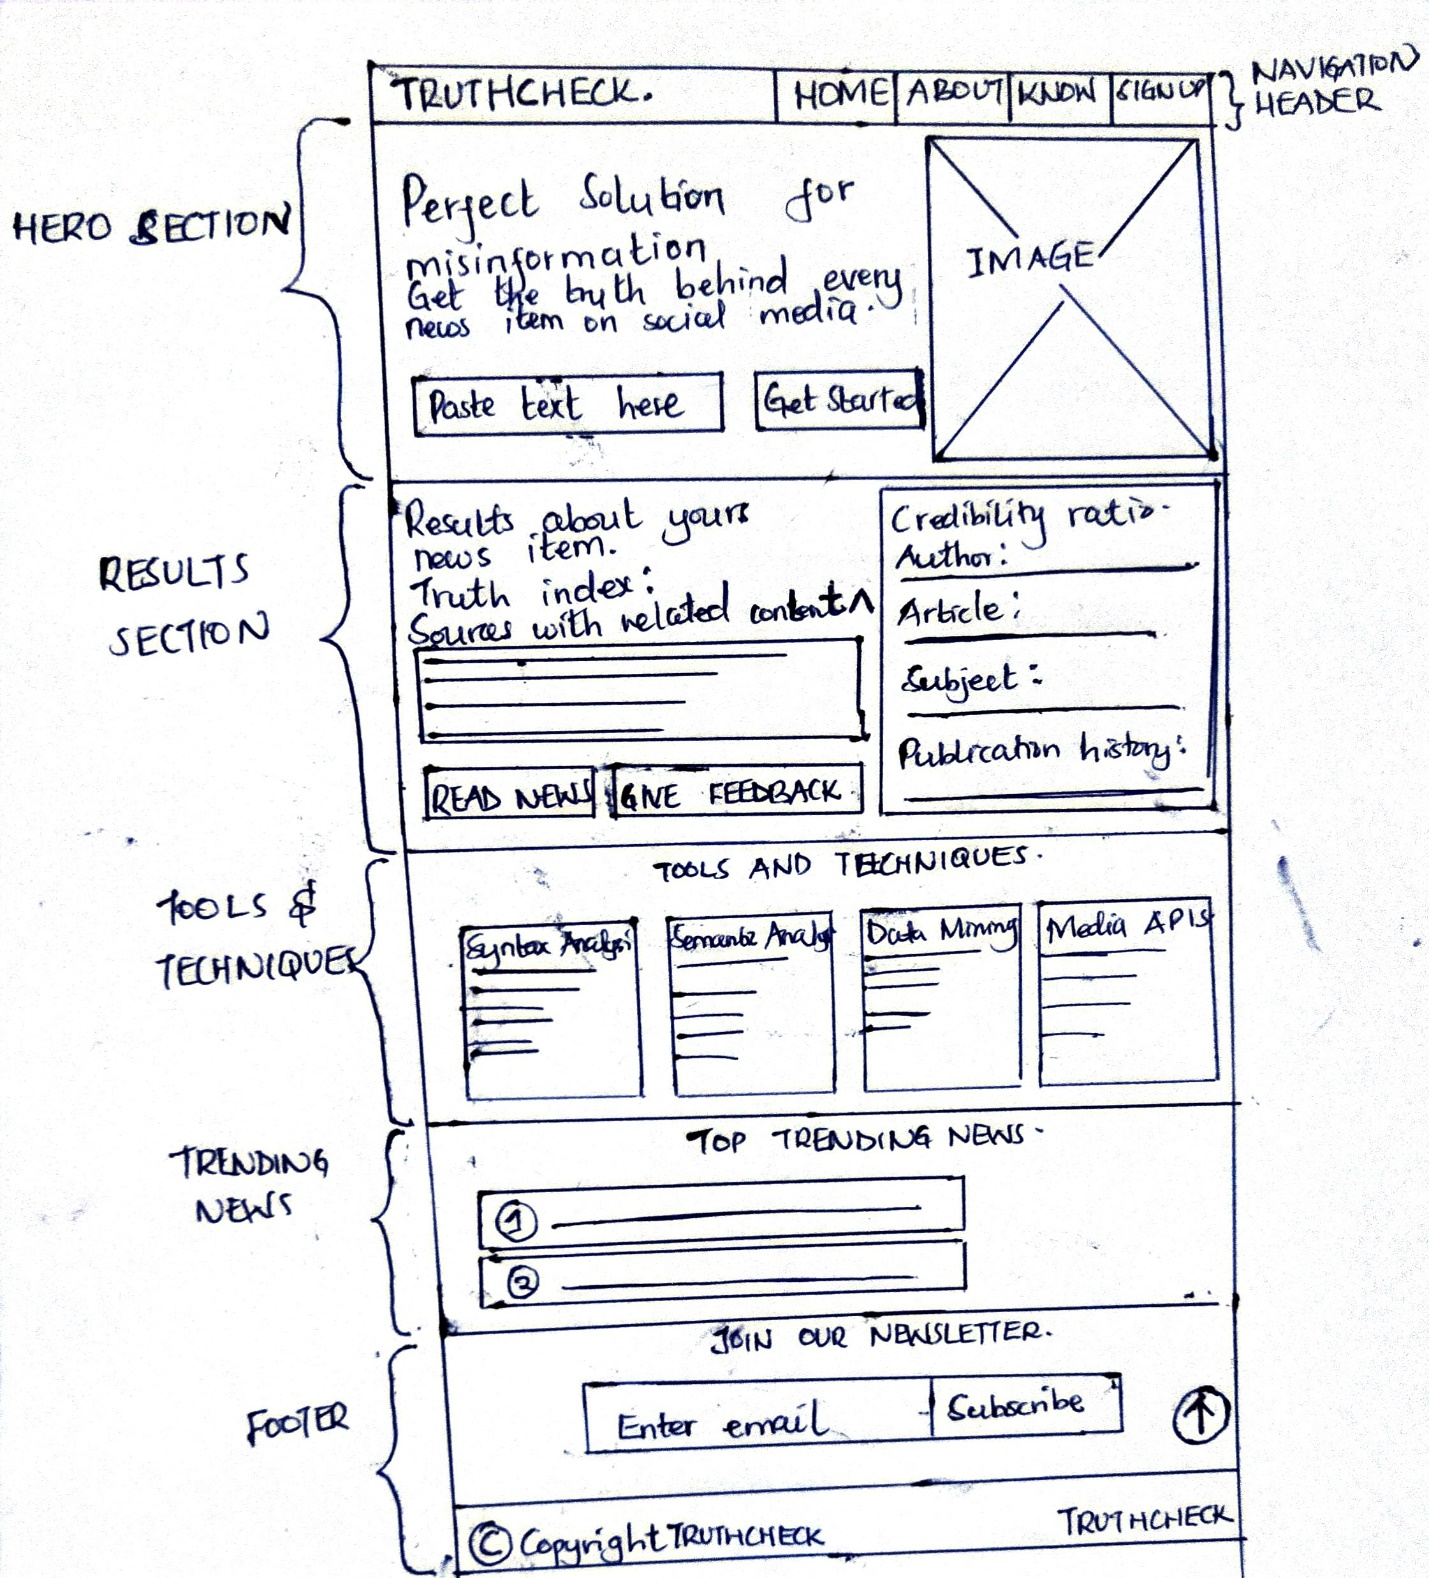 TRUTHCHECK. HOME ABOUT KNOW SIGNUP
NAVIGATION
HEADER
HERO SECTION
Perfect Solution for
misinformation
Get the truth behind every
news item on social media.
Paste text here
Get Started
IMAGE
RESULTS
SECTION
Results about yours
news item.
Truth index:
Sources with related content
READ NEWS
GIVE FEEDBACK
Credibility ratio.
Author:
Article:
Subject:
Publication history:
TOOLS &
TECHNIQUES
TOOLS AND TECHNIQUES.
Syntax Analysi
Semantic Analy
Data Mining
Media APIS
TRENDING
NEWS
TOP TRENDING NEWS.
1
2
FOOTER
JOIN OUR NEWSLETTER.
Enter email
Subscribe
© Copyright TRUTHCHECK
TRUTHCHECK